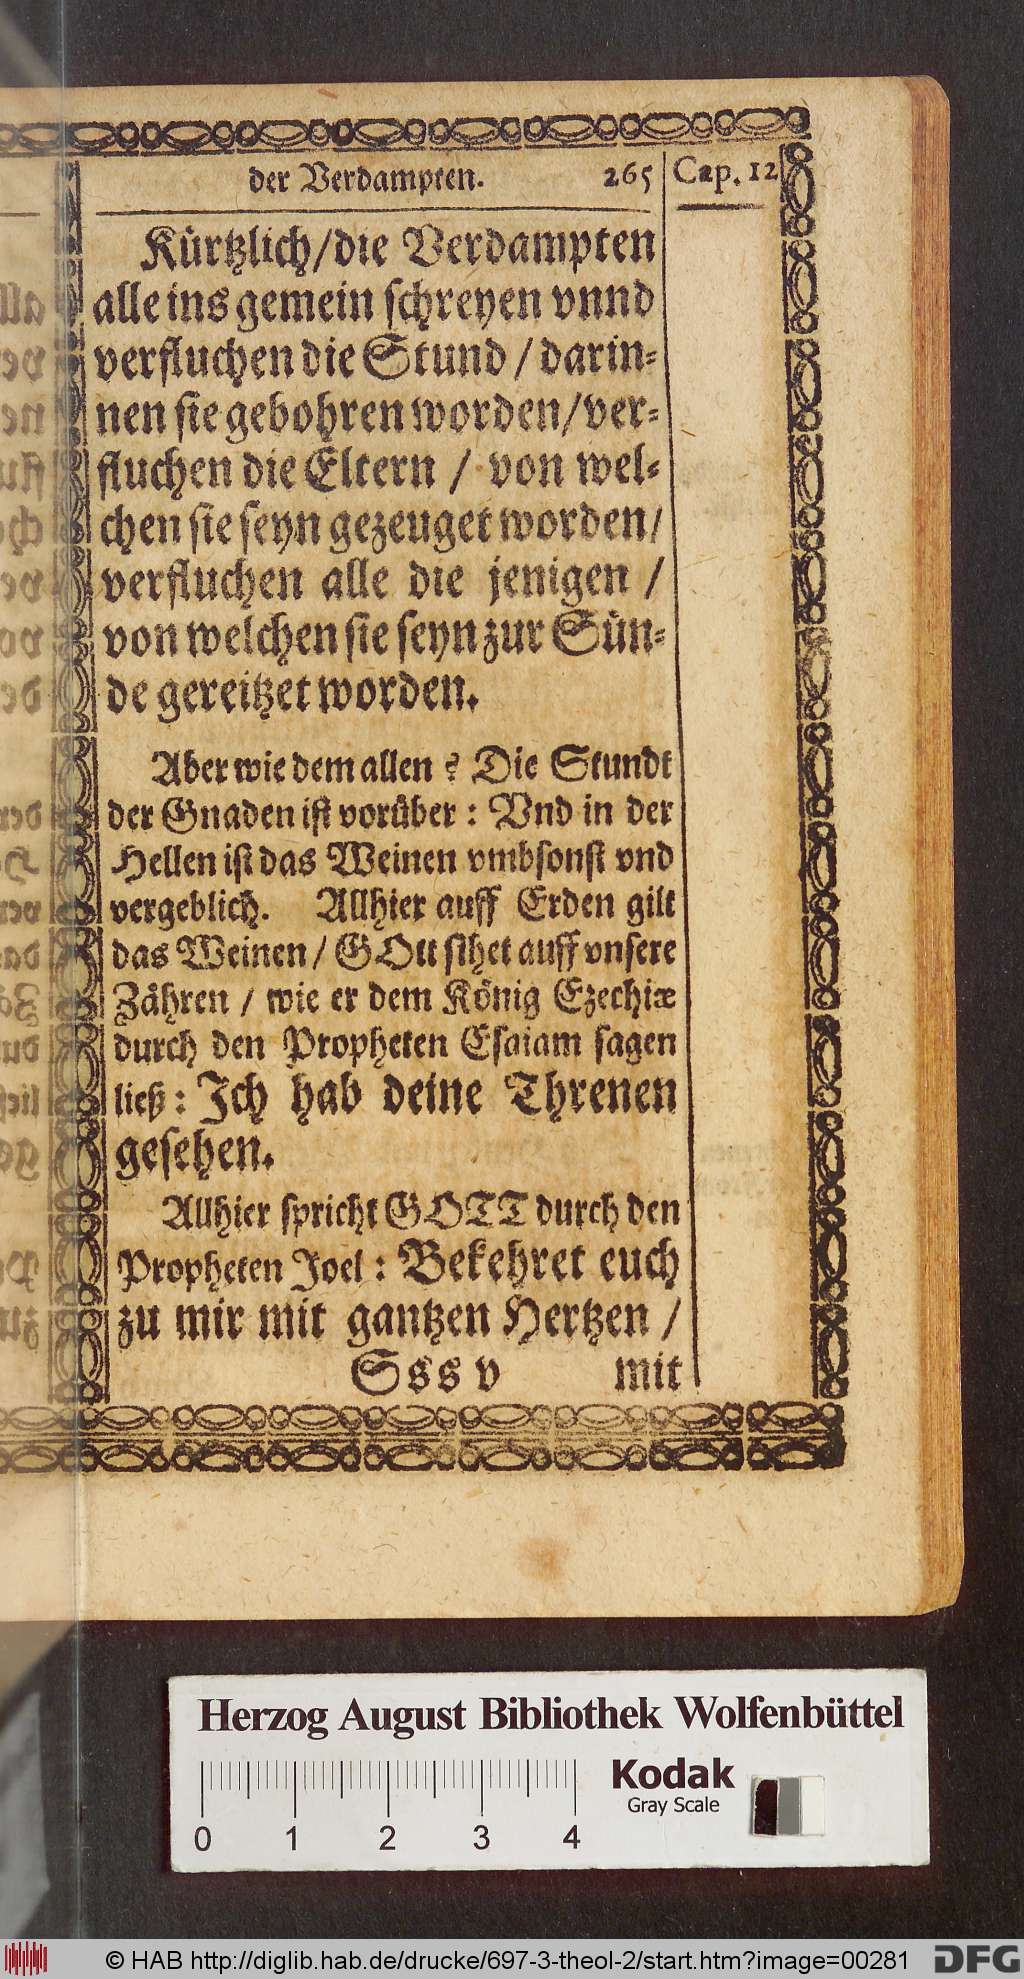 der Verdampten. 265 Cap. 12
Kürtzlich/die Verdampten
alle ins gemein schreyen vnnd
verfluchen die Stund / darin-
nen sie gebohren worden/ver-
fluchen die Eltern / von wel-
chen sie seyn gezeuget worden/
verfluchen alle die jenigen /
von welchen sie seyn zur Sün-
de gereitzet worden.
Aber wie dem allen? Die Stundt
der Gnaden ist vorüber: Vnd in der
Hellen ist das Weinen vmbsonst vnd
vergeblich. Allhier auff Erden gilt
das Weinen / GOtt sihet auff vnsere
Zähren / wie er dem König Ezechiæ
durch den Propheten Esaiam sagen
ließ: Ich hab deine Threnen
gesehen.
Allhier spricht GOTT durch den
Propheten Joel: Bekehret euch
zu mir mit gantzen Hertzen /
Sss v mit
Herzog August Bibliothek Wolfenbüttel
Kodak
Gray Scale
0 1 2 3 4
© HAB http://diglib.hab.de/drucke/697-3-theol-2/start.htm?image=00281
DFG